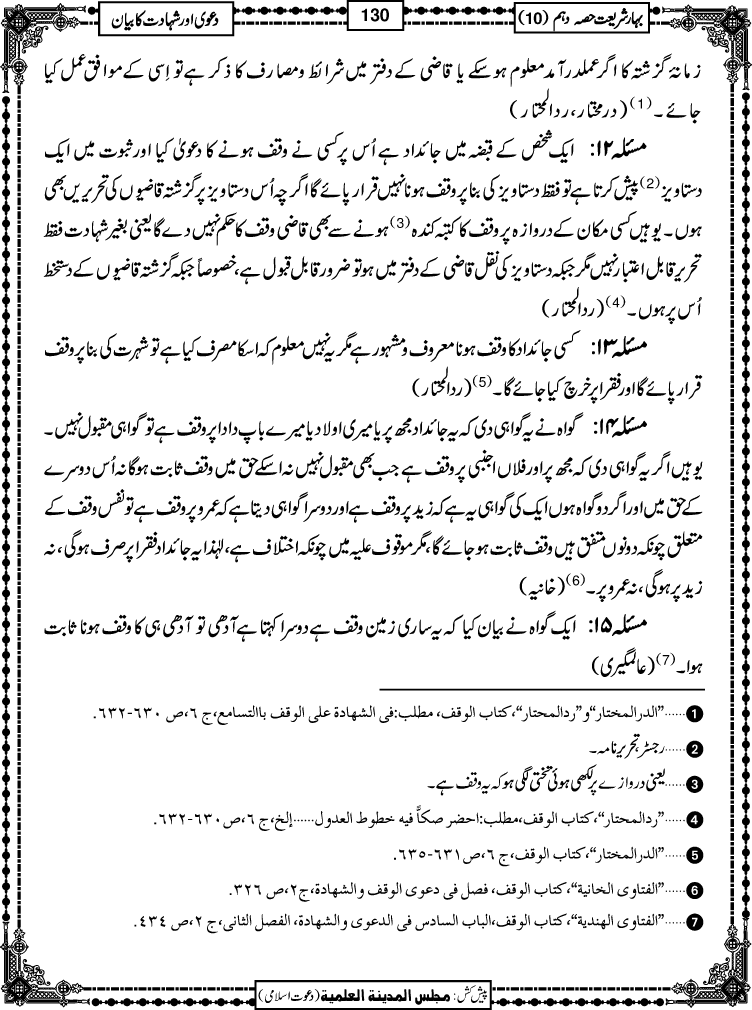 بہار شریعت حصہ دہم (10)
130
دعویٰ اور شہادت کا بیان
زمانۂ گزشتہ کا اگر عملدرآمد معلوم ہوسکے یا قاضی کے دفتر میں شرائط و مصارف کا ذکر ہے تو اِسی کے موافق عمل کیا
جائے۔(1)(درمختار، ردالمحتار)
مسئلہ ۱۲: ایک شخص کے قبضہ میں جائداد ہے اُس پر کسی نے وقف ہونے کا دعویٰ کیا اور ثبوت میں ایک
دستاویز(2) پیش کرتا ہے تو فقط دستاویز کی بنا پر وقف ہونا نہیں قرار پائے گا اگرچہ اُس دستاویز پر گزشتہ قاضیوں کی تحریریں بھی
ہوں۔ یوہیں کسی مکان کے دروازہ پر وقف کا کتبہ کندہ(3) ہونے سے بھی قاضی وقف کا حکم نہیں دے گا یعنی بغیر شہادت فقط
تحریر قابل اعتبار نہیں مگر جبکہ دستاویز کی نقل قاضی کے دفتر میں ہو تو ضرور قابل قبول ہے، خصوصاً جبکہ گزشتہ قاضیوں کے دستخط
اُس پر ہوں۔(4)(ردالمحتار)
مسئلہ ۱۳: کسی جائداد کا وقف ہونا معروف و مشہور ہے مگر یہ نہیں معلوم کہ اسکا مصرف کیا ہے تو شہرت کی بنا پر وقف
قرار پائے گا اور فقرا پر خرچ کیا جائے گا۔(5)(ردالمحتار)
مسئلہ ۱۴: گواہ نے یہ گواہی دی کہ یہ جائداد مجھ پر یا میری اولاد یا میرے باپ دادا پر وقف ہے تو گواہی مقبول نہیں۔
یوہیں اگر یہ گواہی دی کہ مجھ پر اور فلاں اجنبی پر وقف ہے جب بھی مقبول نہیں نہ اسکے حق میں وقف ثابت ہوگا نہ اُس دوسرے
کے حق میں اور اگر دو گواہ ہوں ایک کی گواہی یہ ہے کہ زید پر وقف ہے اور دوسرا گواہی دیتا ہے کہ عمرو پر وقف ہے تو نفس وقف کے
متعلق چونکہ دونوں متفق ہیں وقف ثابت ہو جائے گا، مگر موقوف علیہ میں چونکہ اختلاف ہے، لہٰذا یہ جائداد فقرا پر صرف ہوگی، نہ
زید پر ہوگی، نہ عمرو پر۔(6)(خانیہ)
مسئلہ ۱۵: ایک گواہ نے بیان کیا کہ یہ ساری زمین وقف ہے دوسرا کہتا ہے آدھی تو آدھی ہی کا وقف ہونا ثابت
ہوا۔(7)(عالمگیری)
❶......"الدرالمختار" و"ردالمحتار"، كتاب الوقف، مطلب:فى الشهادة على الوقف باالتسامع، ج٦، ص ٦٣٠-٦٣٢.
❷......رجسٹر، تحریرنامہ۔
❸......یعنی دروازے پر لکھی ہوئی تختی لگی ہو کہ یہ وقف ہے۔
❹......"ردالمحتار"، كتاب الوقف، مطلب:احضر صكاً فيه خطوط العدول......إلخ، ج٦، ص ٦٣٠-٦٣٢.
❺......"الدرالمختار"، كتاب الوقف، ج٦، ص ٦٣١-٦٣٥.
❻......"الفتاوى الخانية"، كتاب الوقف، فصل فى دعوى الوقف والشهادة، ج٢، ص ٣٢٦.
❼......"الفتاوى الهندية"، كتاب الوقف، الباب السادس فى الدعوى والشهادة، الفصل الثانى، ج٢، ص ٤٣٤.
پیش کش: مجلس المدينة العلمية (دعوت اسلامی)